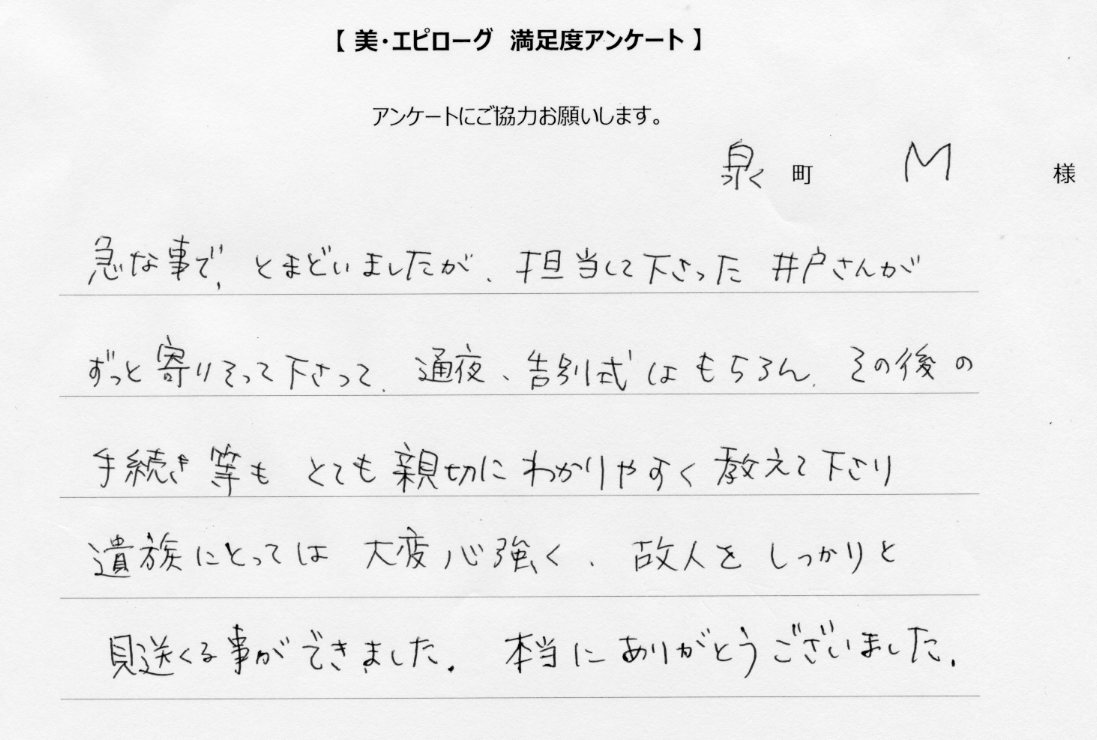 【 美・エピローグ 満足度アンケート 】
アンケートにご協力お願いします。
泉 町 M 様
急な事で、とまどいましたが、担当して下さった 井戸さんが
ずっと寄りそって下さって、通夜、告別式はもちろん、その後の
手続き等も とても親切にわかりやすく教えて下さり
遺族にとっては 大変心強く、故人を しっかりと
見送くる事ができました。 本当にありがとうございました。